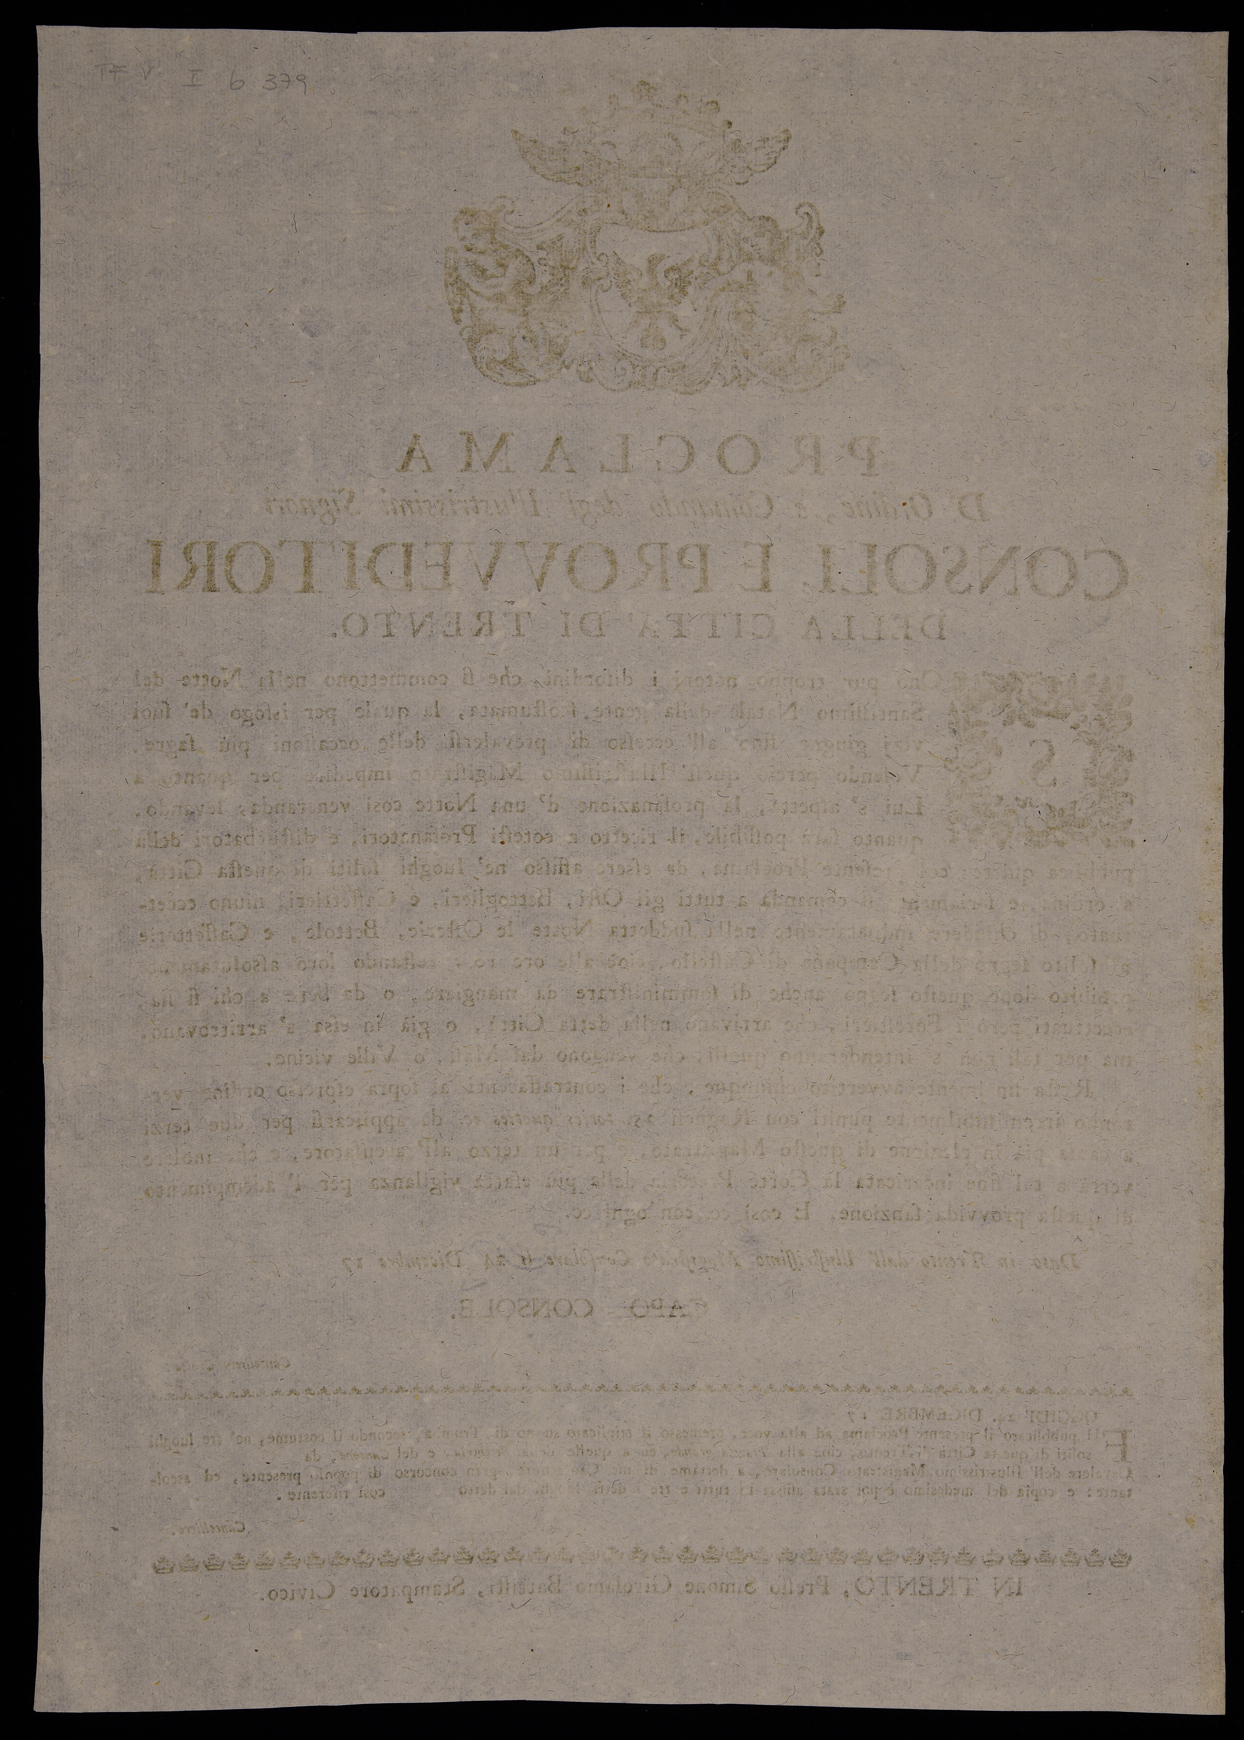 TF V II b 379
PROCLAMA
D'Ordine, e Comando degl' Illustrissimi Signori
CONSOLI E PROVVEDITORI
DELLA CITTA' DI TRENTO.
SOno pur troppo notorj i disordini, che si commettono nella Notte del
Santissimo Natale dalla gente scostumata, la quale per isfogo de' suoi
vizj giugne sino all' eccesso di prevalersi delle occasioni più sagre.
Volendo perciò quest' Illustrissimo Magistrato impedire per quanto a
Lui s' aspetta, la profanazione d' una Notte così veneranda; levando,
quanto sarà possibile, il ricetto a cotesti Profanatori, e disturbatori della
pubblica quiete; col presente Proclama, da essere affisso ne' luoghi soliti di questa Città,
s' ordina, e seriamente si comanda a tutti gli Osti, Bettoglieri, e Caffettieri, niuno eccet-
tuato, di chiudere nella suddetta Notte le Osterie, Bettole, e Caffetterie
al solito segno della Campana di Castello, cioè alle ore 10., restando loro assolutamente
proibito dopo questo segno anche di somministrare da mangiare, o da bere a chi si sia,
eccettuati però i Forastieri, che arrivano nella detta Città, o già in essa s' arritrovano,
ma per tali non s' intenderanno quelli, che vengono dai Masi, o Ville vicine.
Resta in avvertito chiunque, che i contraffacenti al sopra espresso ordine ver-
ranno puniti con Ragnesi 25. toties quoties ec. da applicarsi per due terzi
a causa pia in elezione di questo Magistrato, e per un terzo all' accusatore, e che inoltre
verrà a tal fine incaricata la Corte Pretoria della più esatta vigilanza per l' adempimento
di questa provvida sanzione. E così ec. con ogni ec.
Dato in Trento dall' Illustrissimo Magistrato Consolare li 24 Dicembre 17
CAPO CONSOLE.
Cancelliere
OGGIDI' 24. DICEMBRE 17
FU pubblicato il presente Proclama ad alta voce, premesso il triplicato suono di Tromba, secondo il costume, ne' tre luoghi
soliti di questa Città di Trento, cioè alla Piazza grande, e del Cantone, da
Cavalere dell' Illustrissimo Magistrato Consolare, a dettame di me Cancelliere, gran concorso di popolo presente, ed ascol-
tante: e copia del medesimo è poi stata affissa in tutti e tre i detti luoghi dal detto così riferente.
Cancelliere.
IN TRENTO, Presso Simone Girolamo Battisti, Stampatore Civico.